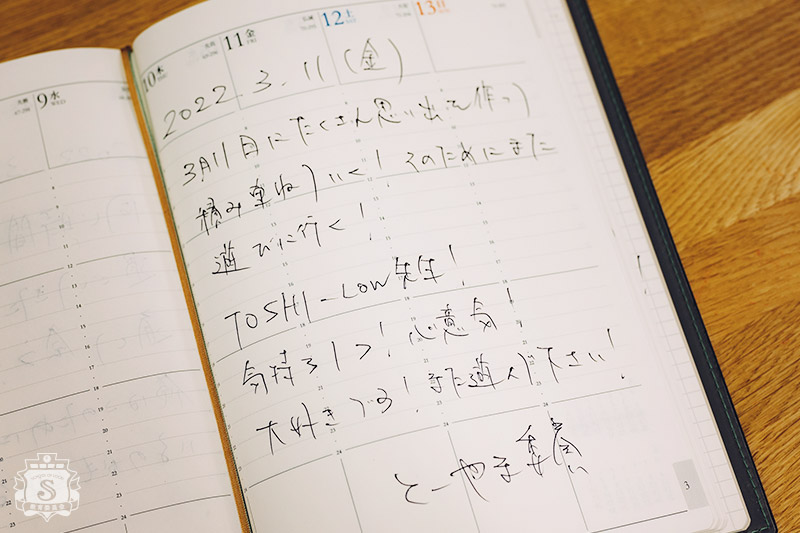 9 水
10 木
11 金
12 土
13 日
2022.3.11(金)
3月11日にたくさん思い出を作って
積み重ねていく! そのためにまた
遊びに行く!
TOSHI-LOW先生!
気持ち1つ! 心意気!
大好きです! また遊んで下さい!
とーやま委員
3
S